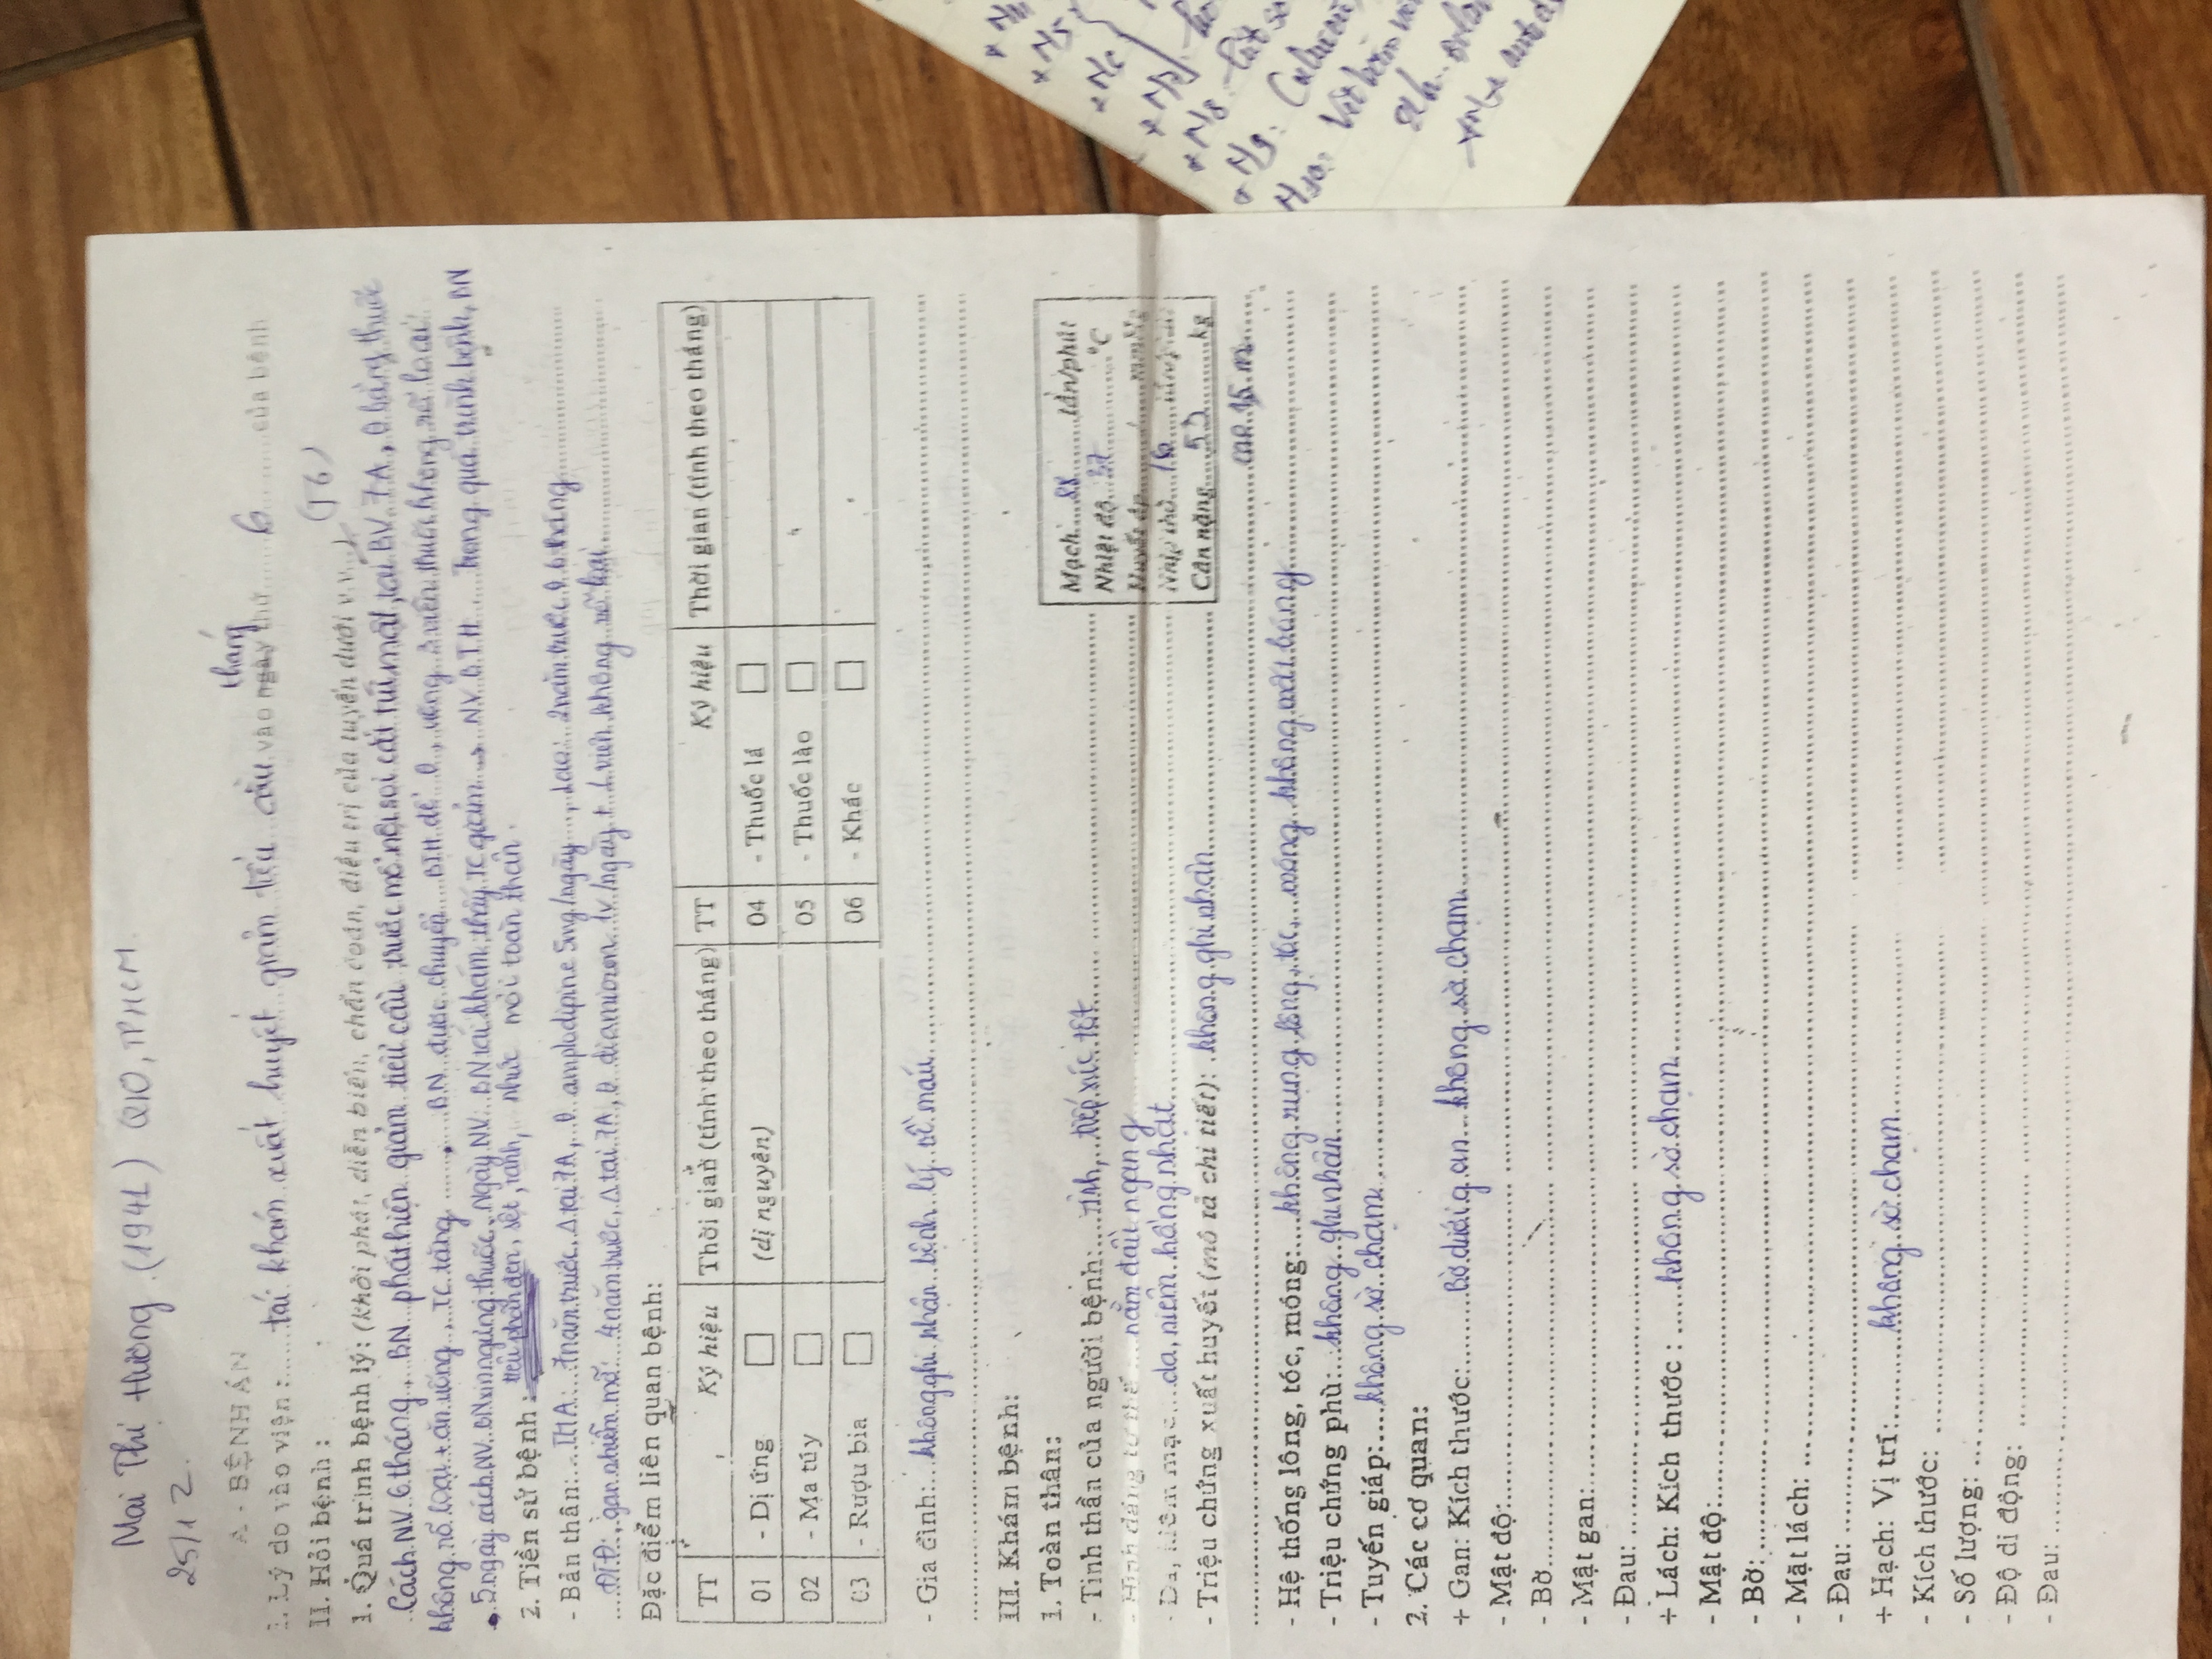 Mai Thị Hường (1941) Q10, TPHCM.
25/12.
A - BỆNH ÁN
I. Lý do vào viện: tái khám xuất huyết giảm tiểu cầu vào ngày tháng thứ 6 của bệnh
II. Hỏi bệnh :
(T6)
1. Quá trình bệnh lý: (khởi phát, diễn biến, chẩn đoán, điều trị của tuyến dưới v.v...)
Cách NV 6 tháng, BN phát hiện giảm tiểu cầu trước mổ nội soi cắt túi mật, tại BV 7A, θ bằng thuốc
không rõ loại + ăn uống, TC tăng, BN được chuyển BTH để θ, uống 3 viên thuốc không rõ loại
5 ngày cách NV BN xin ngưng thuốc. Ngày NV BN tái khám, thấy TC giảm → NV BTH. Trong quá trình bệnh, BN
tiêu phân đen, sệt, tanh, nhức mỏi toàn thân.
2. Tiền sử bệnh :
- Bản thân: THA: 7 năm trước, Δ tại 7A, θ amplodipine 5mg/ngày, Lao: 2 năm trước θ 6 tháng
ĐTĐ, gan nhiễm mỡ: 4 năm trước, Δ tại 7A, θ diamicron 1v/ngày + 1 viên không rõ loại.
Đặc điểm liên quan bệnh:
TT Ký hiệu Thời gian (tính theo tháng) TT Ký hiệu Thời gian (tính theo tháng)
01 - Dị ứng (dị nguyên) 04 - Thuốc lá
02 - Ma túy 05 - Thuốc lào
03 - Rượu bia 06 - Khác
- Gia đình: không ghi nhận bệnh lý về máu
III. Khám bệnh:
1. Toàn thân:
Mạch 88 lần/phút
- Tinh thần của người bệnh: tỉnh, tiếp xúc tốt
Nhiệt độ 37 °C
- Hình dáng tư thế nằm đầu ngang
Huyết áp / mmHg
- Da, niêm mạc da, niêm hồng nhạt
Nhịp thở 16 lần/phút
- Triệu chứng xuất huyết (mô tả chi tiết): không ghi nhận
Cân nặng 53 kg
cao 1,5 m
- Hệ thống lông, tóc, móng: không rụng lông, tóc, móng không mất bóng
- Triệu chứng phù: không ghi nhận
- Tuyến giáp: không sờ chạm
2. Các cơ quan:
+ Gan: Kích thước: Bờ dưới gan không sờ chạm
- Mật độ:
- Bờ
- Mật gan:
- Đau:
+ Lách: Kích thước : không sờ chạm
- Mật độ:
- Bờ:
- Mặt lách:
- Đau:
+ Hạch: Vị trí: không sờ chạm
- Kích thước:
- Số lượng:
- Độ di động:
- Đau: